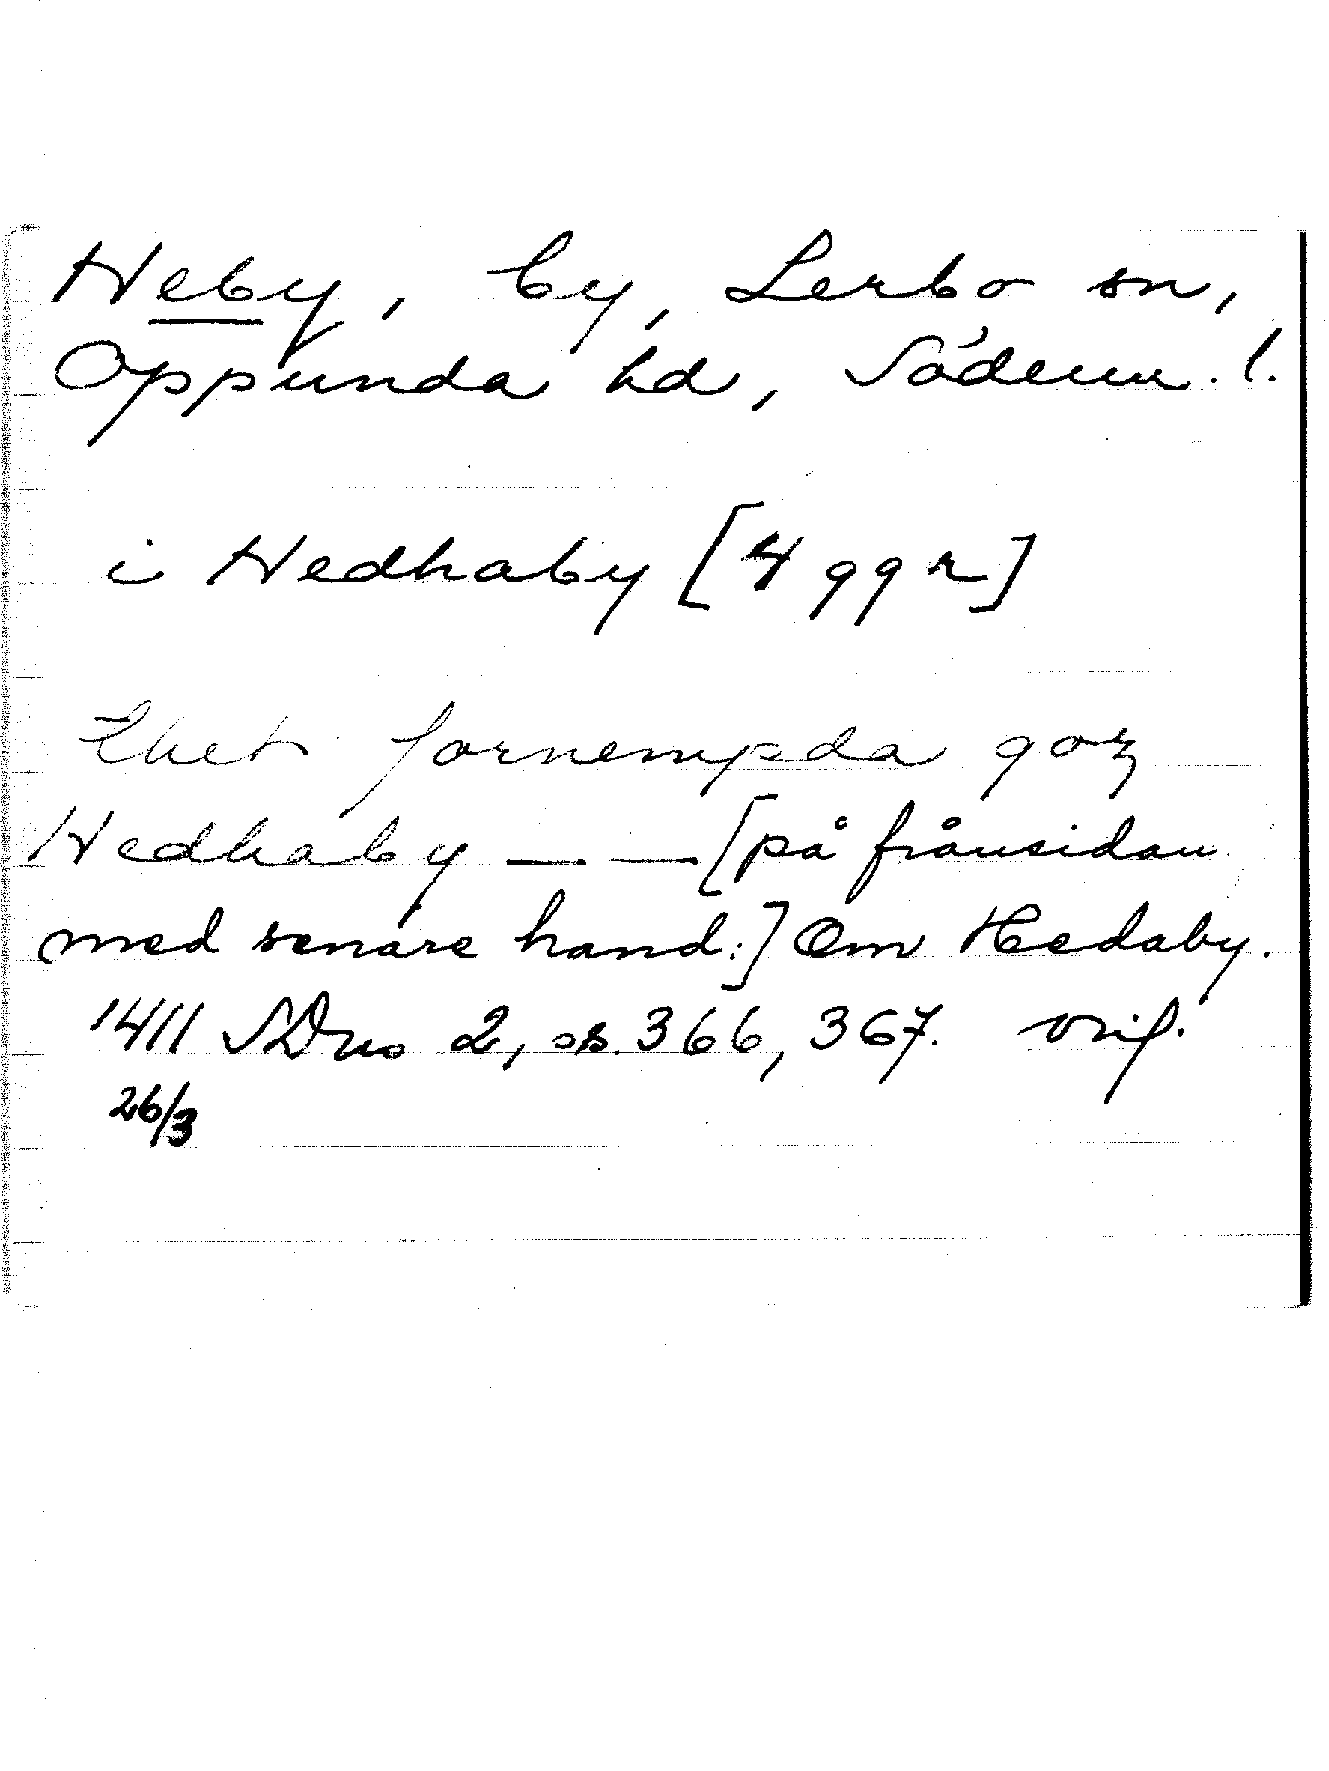 Heby, by, Lerbo sn,
Oppunda hd, Söderm. l.
i Hedhaby [4 ggr]
Thet fornempda goz
Hedhaby — — [på frånsidan
med senare hand:] Om Hedaby.
1411 SDns 2, ss. 366, 367. orig.
26/3